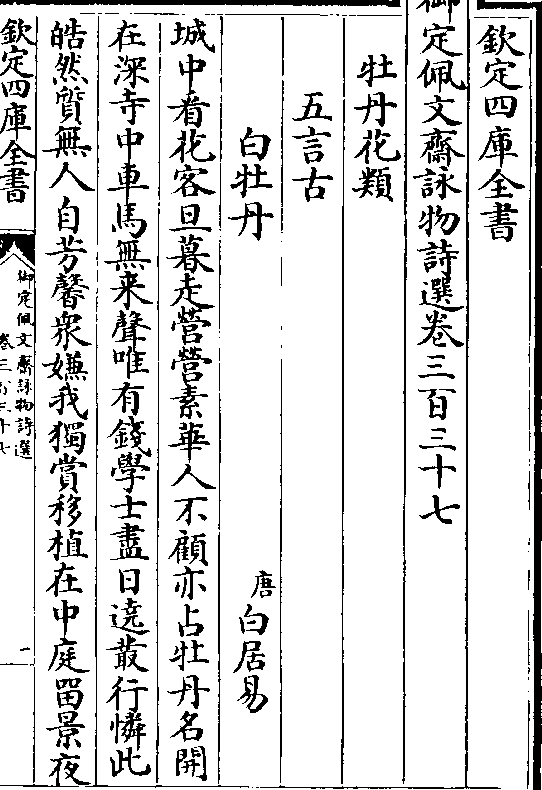 欽定四庫全書
御定佩文齋詠物詩選卷三百三十七
牡丹花類
五言古
白牡丹　唐白居易
城中看花客旦暮走營營素華人不顧亦占牡丹名開
在深寺中車馬無来聲唯有錢學士盡日遶叢行憐此
皓然質無人自芳馨衆嫌我獨賞移植在中庭留景夜
欽定四庫全書
御定佩文齋詠物詩選
卷三百三十七
一